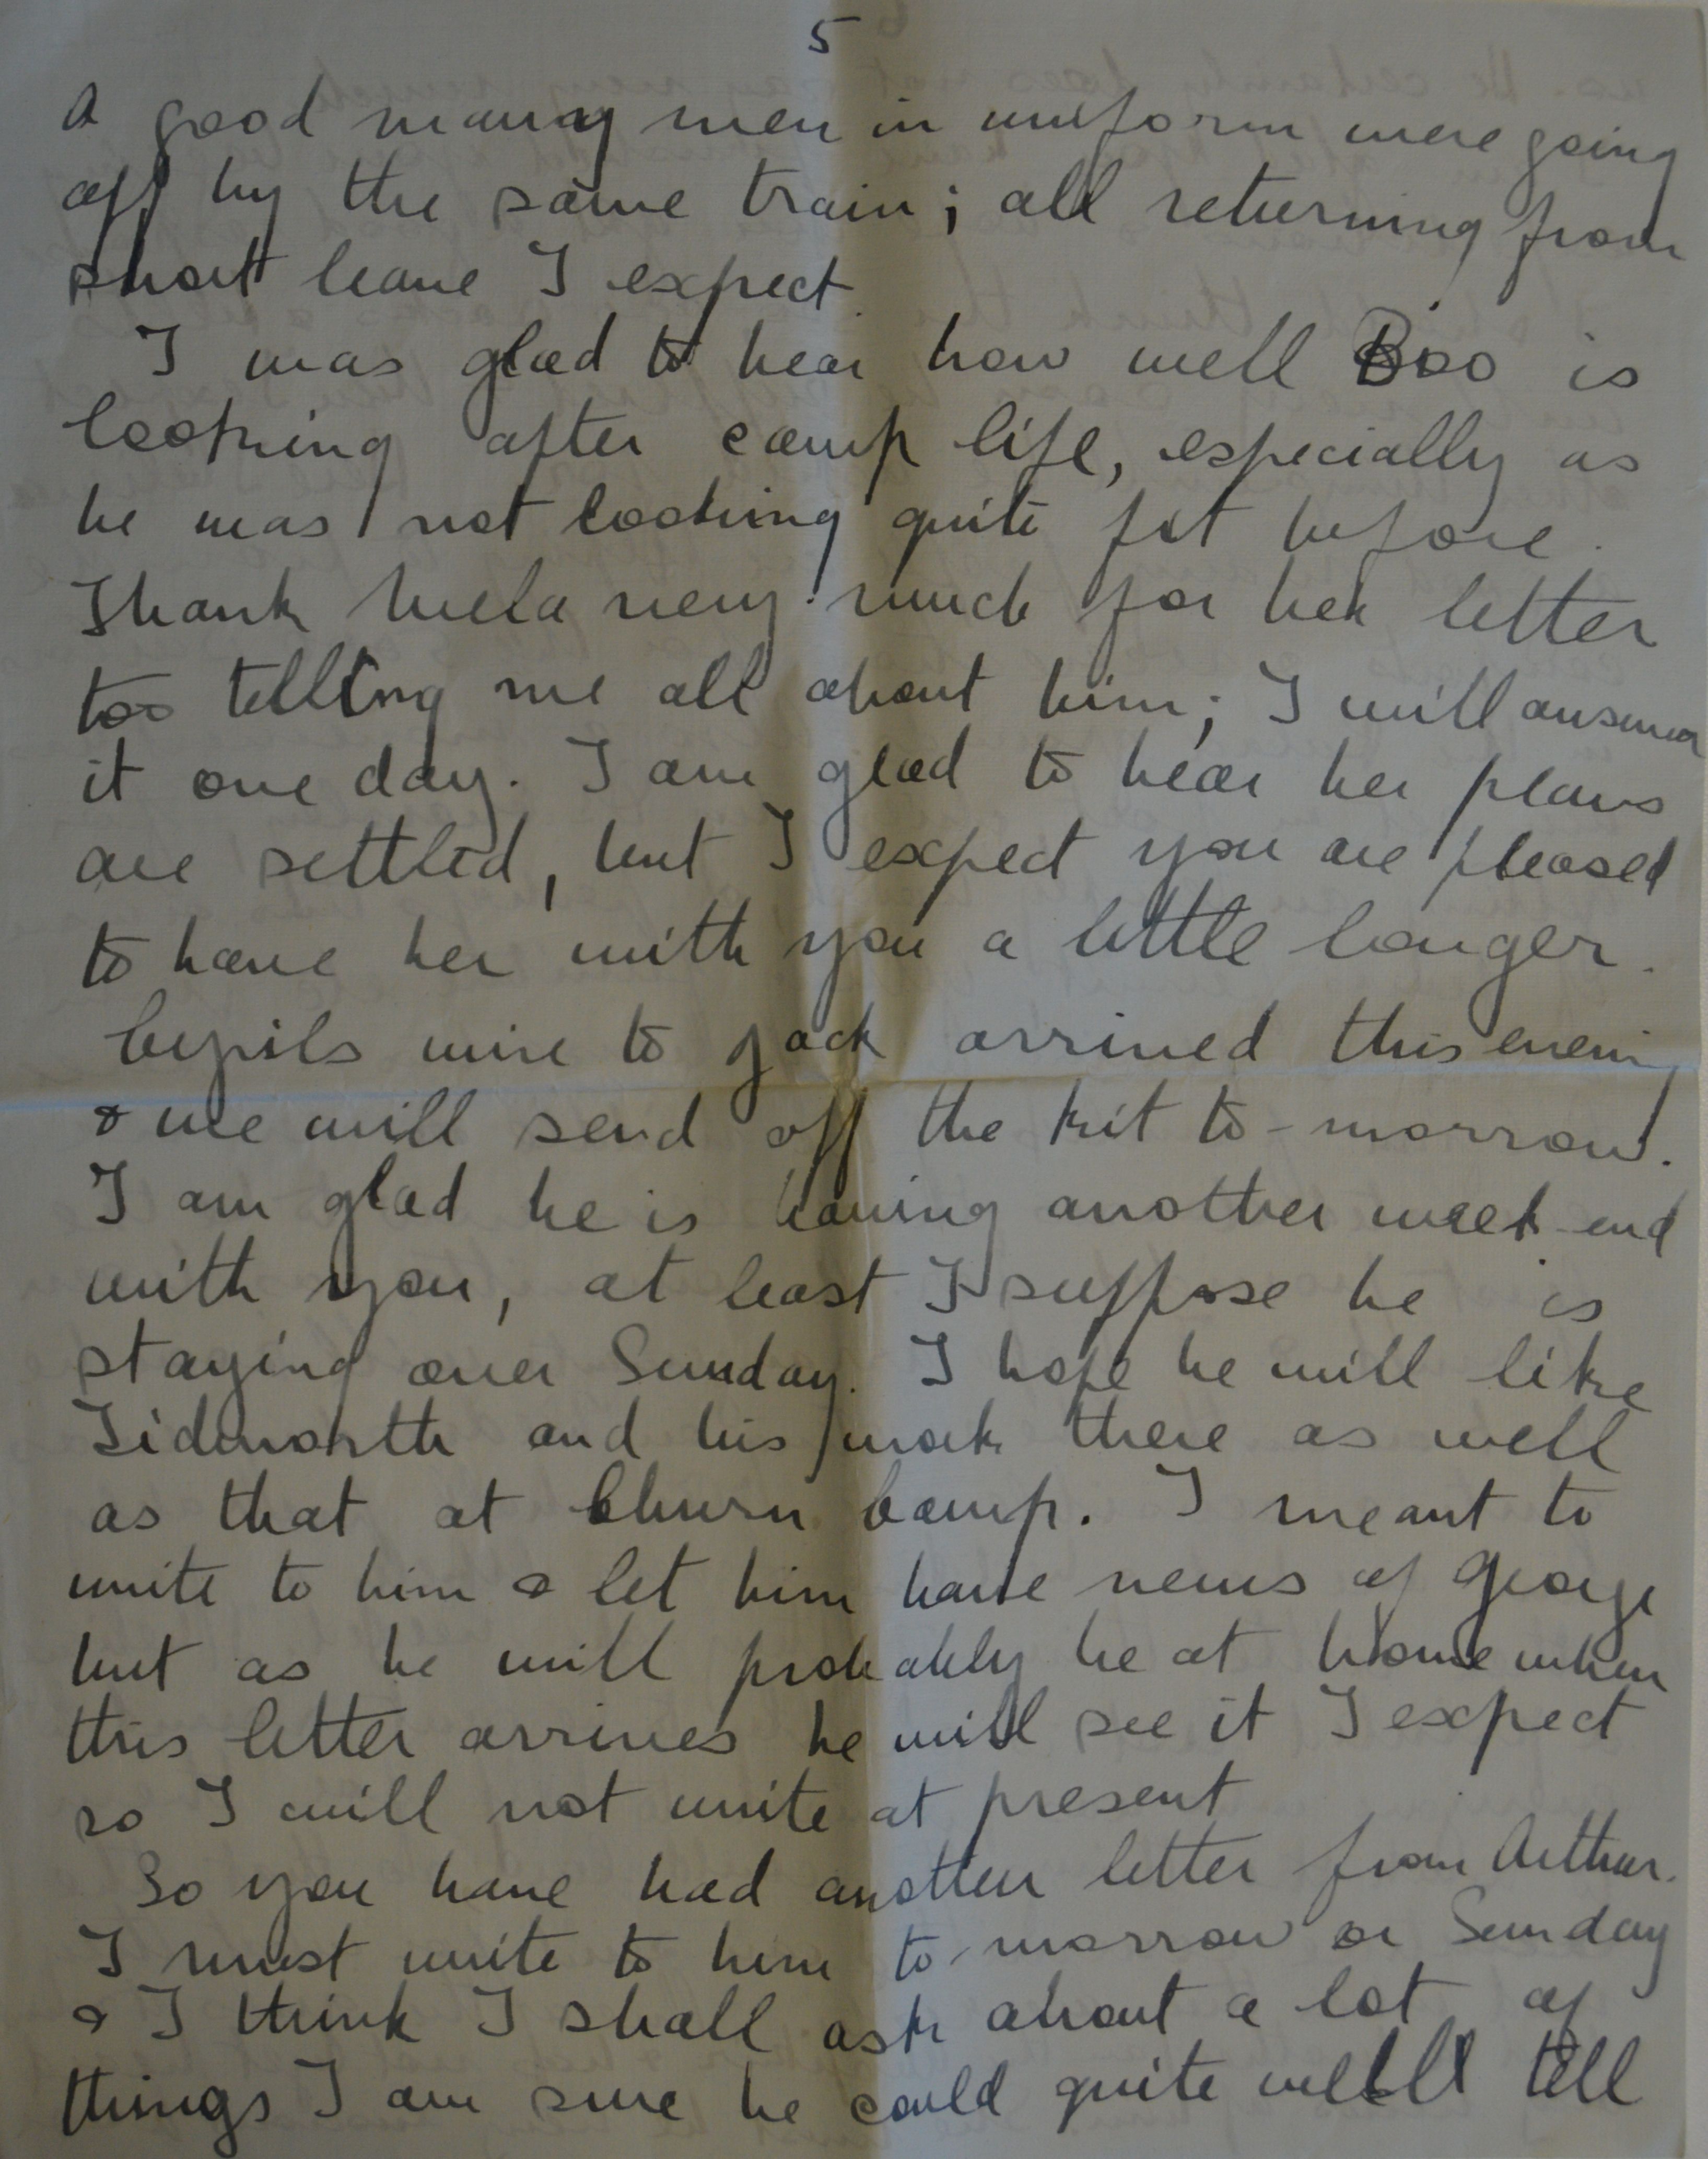 5
A good many men in uniform were going
off by the same train; all returning from
short leave I expect.
I was glad to hear how well Boo is
looking after camp life, especially as
he was not looking quite fit before.
Thank Mela very much for her letter
too telling me all about him; I will answer
it one day. I am glad to hear her plans
are settled, but I expect you are pleased
to have her with you a little longer.
Cyril's wire to Jack arrived this evening
& we will send off the kit to-morrow.
I am glad he is having another week-end
with you, at least I suppose he is
staying over Sunday. I hope he will like
Tidworth and his work there as well
as that at Churn Camp. I meant to
write to him & let him have news of George
but as he will probably be at home when
this letter arrives he will see it I expect
so I will not write at present
So you have had another letter from Arthur.
I must write to him to-morrow or Sunday
& I think I shall ask about a lot of
things I am sure he could quite well tell